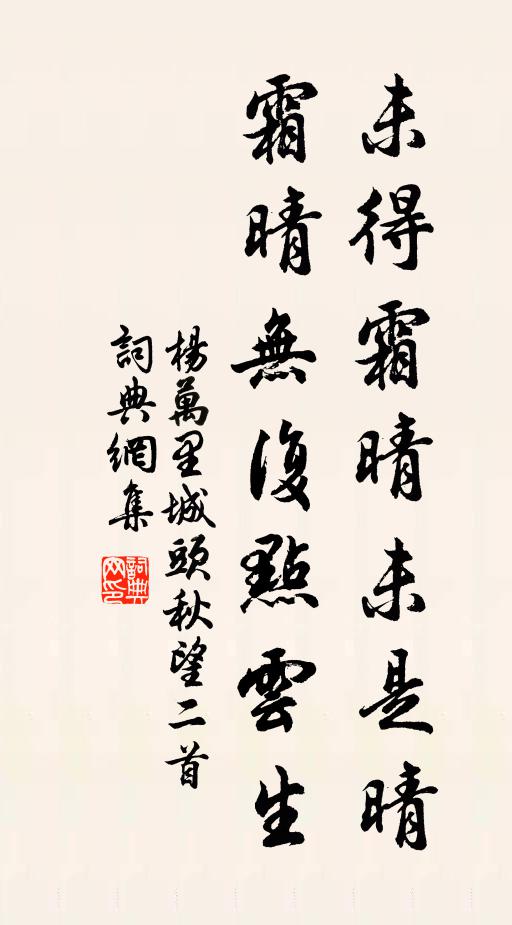 未得霜晴未是晴
霜晴無復點雲生
楊萬里城頭秋望二首
詞典網集
詞典網印